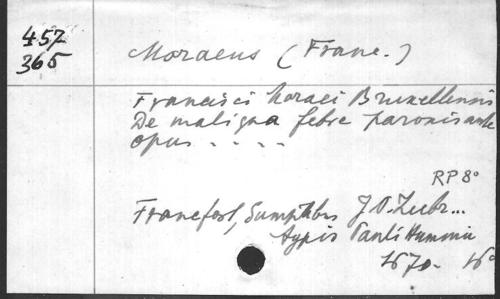 457
365
Moraeus (Franc.)
Francisci Moraei Bruxellensis
De maligna febre paroxisante
opus . . . .
RP 8°
Francfort, Sumptibus J. D. Zubr...
typis Pauli Hummii
1670. 16°